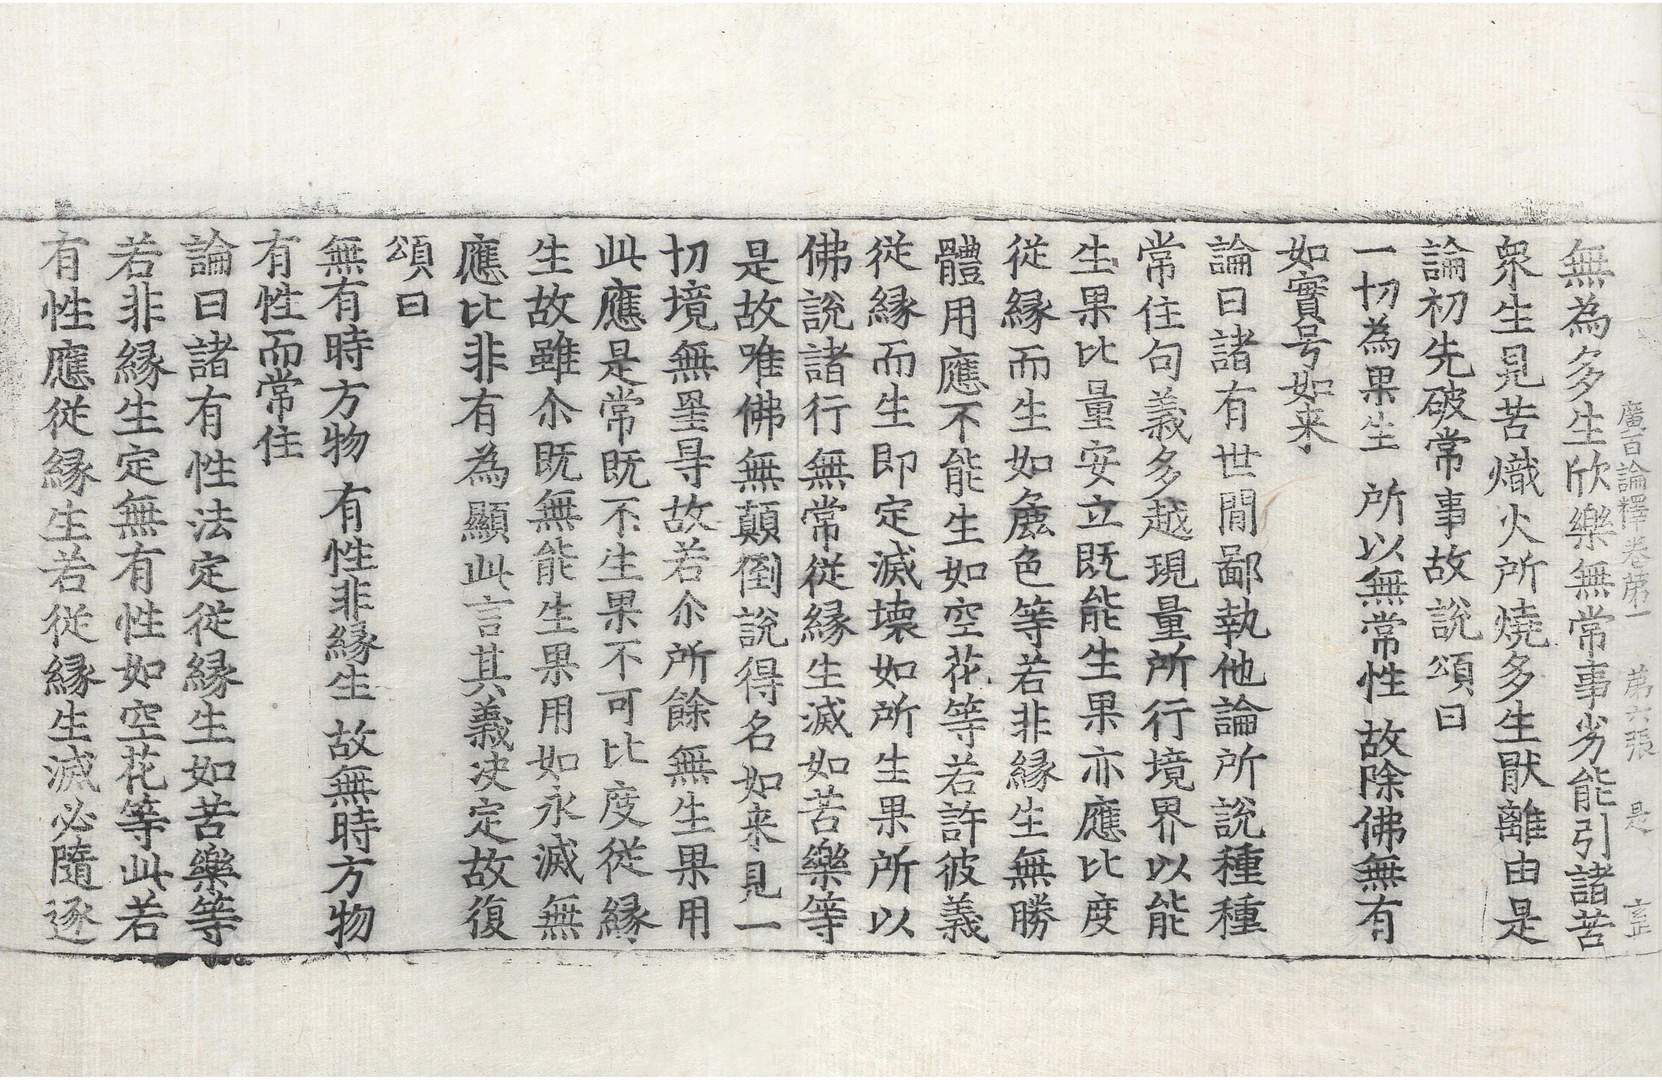 廣百論釋卷第一　第六張　是
無為多生欣樂無常事劣能引諸苦
衆生見苦熾火所燒多生猒離由是
論初先破常事故說頌曰
一切為果生　所以無常性　故除佛無有
如實号如来
論曰諸有世閒鄙執他論所說種種
常住句義多越現量所行境界以能
生果比量安立既能生果亦應比度
從緣而生如麁色等若非緣生無勝
體用應不能生如空花等若許彼義
從緣而生即定滅壞如所生果所以
佛說諸行無常從緣生滅如苦樂等
是故唯佛無顛倒說得名如来見一
切境無罣㝵故若尒所餘無生果用
此應是常既不生果不可比度從緣
生故雖尒既無能生果用如永滅無
應比非有為顯此言其義决定故復
頌曰
無有時方物　有性非緣生　故無時方物
有性而常住
論曰諸有性法定從緣生如苦樂等
若非緣生定無有性如空花等此若
有性應從緣生若從緣生滅必隨逐